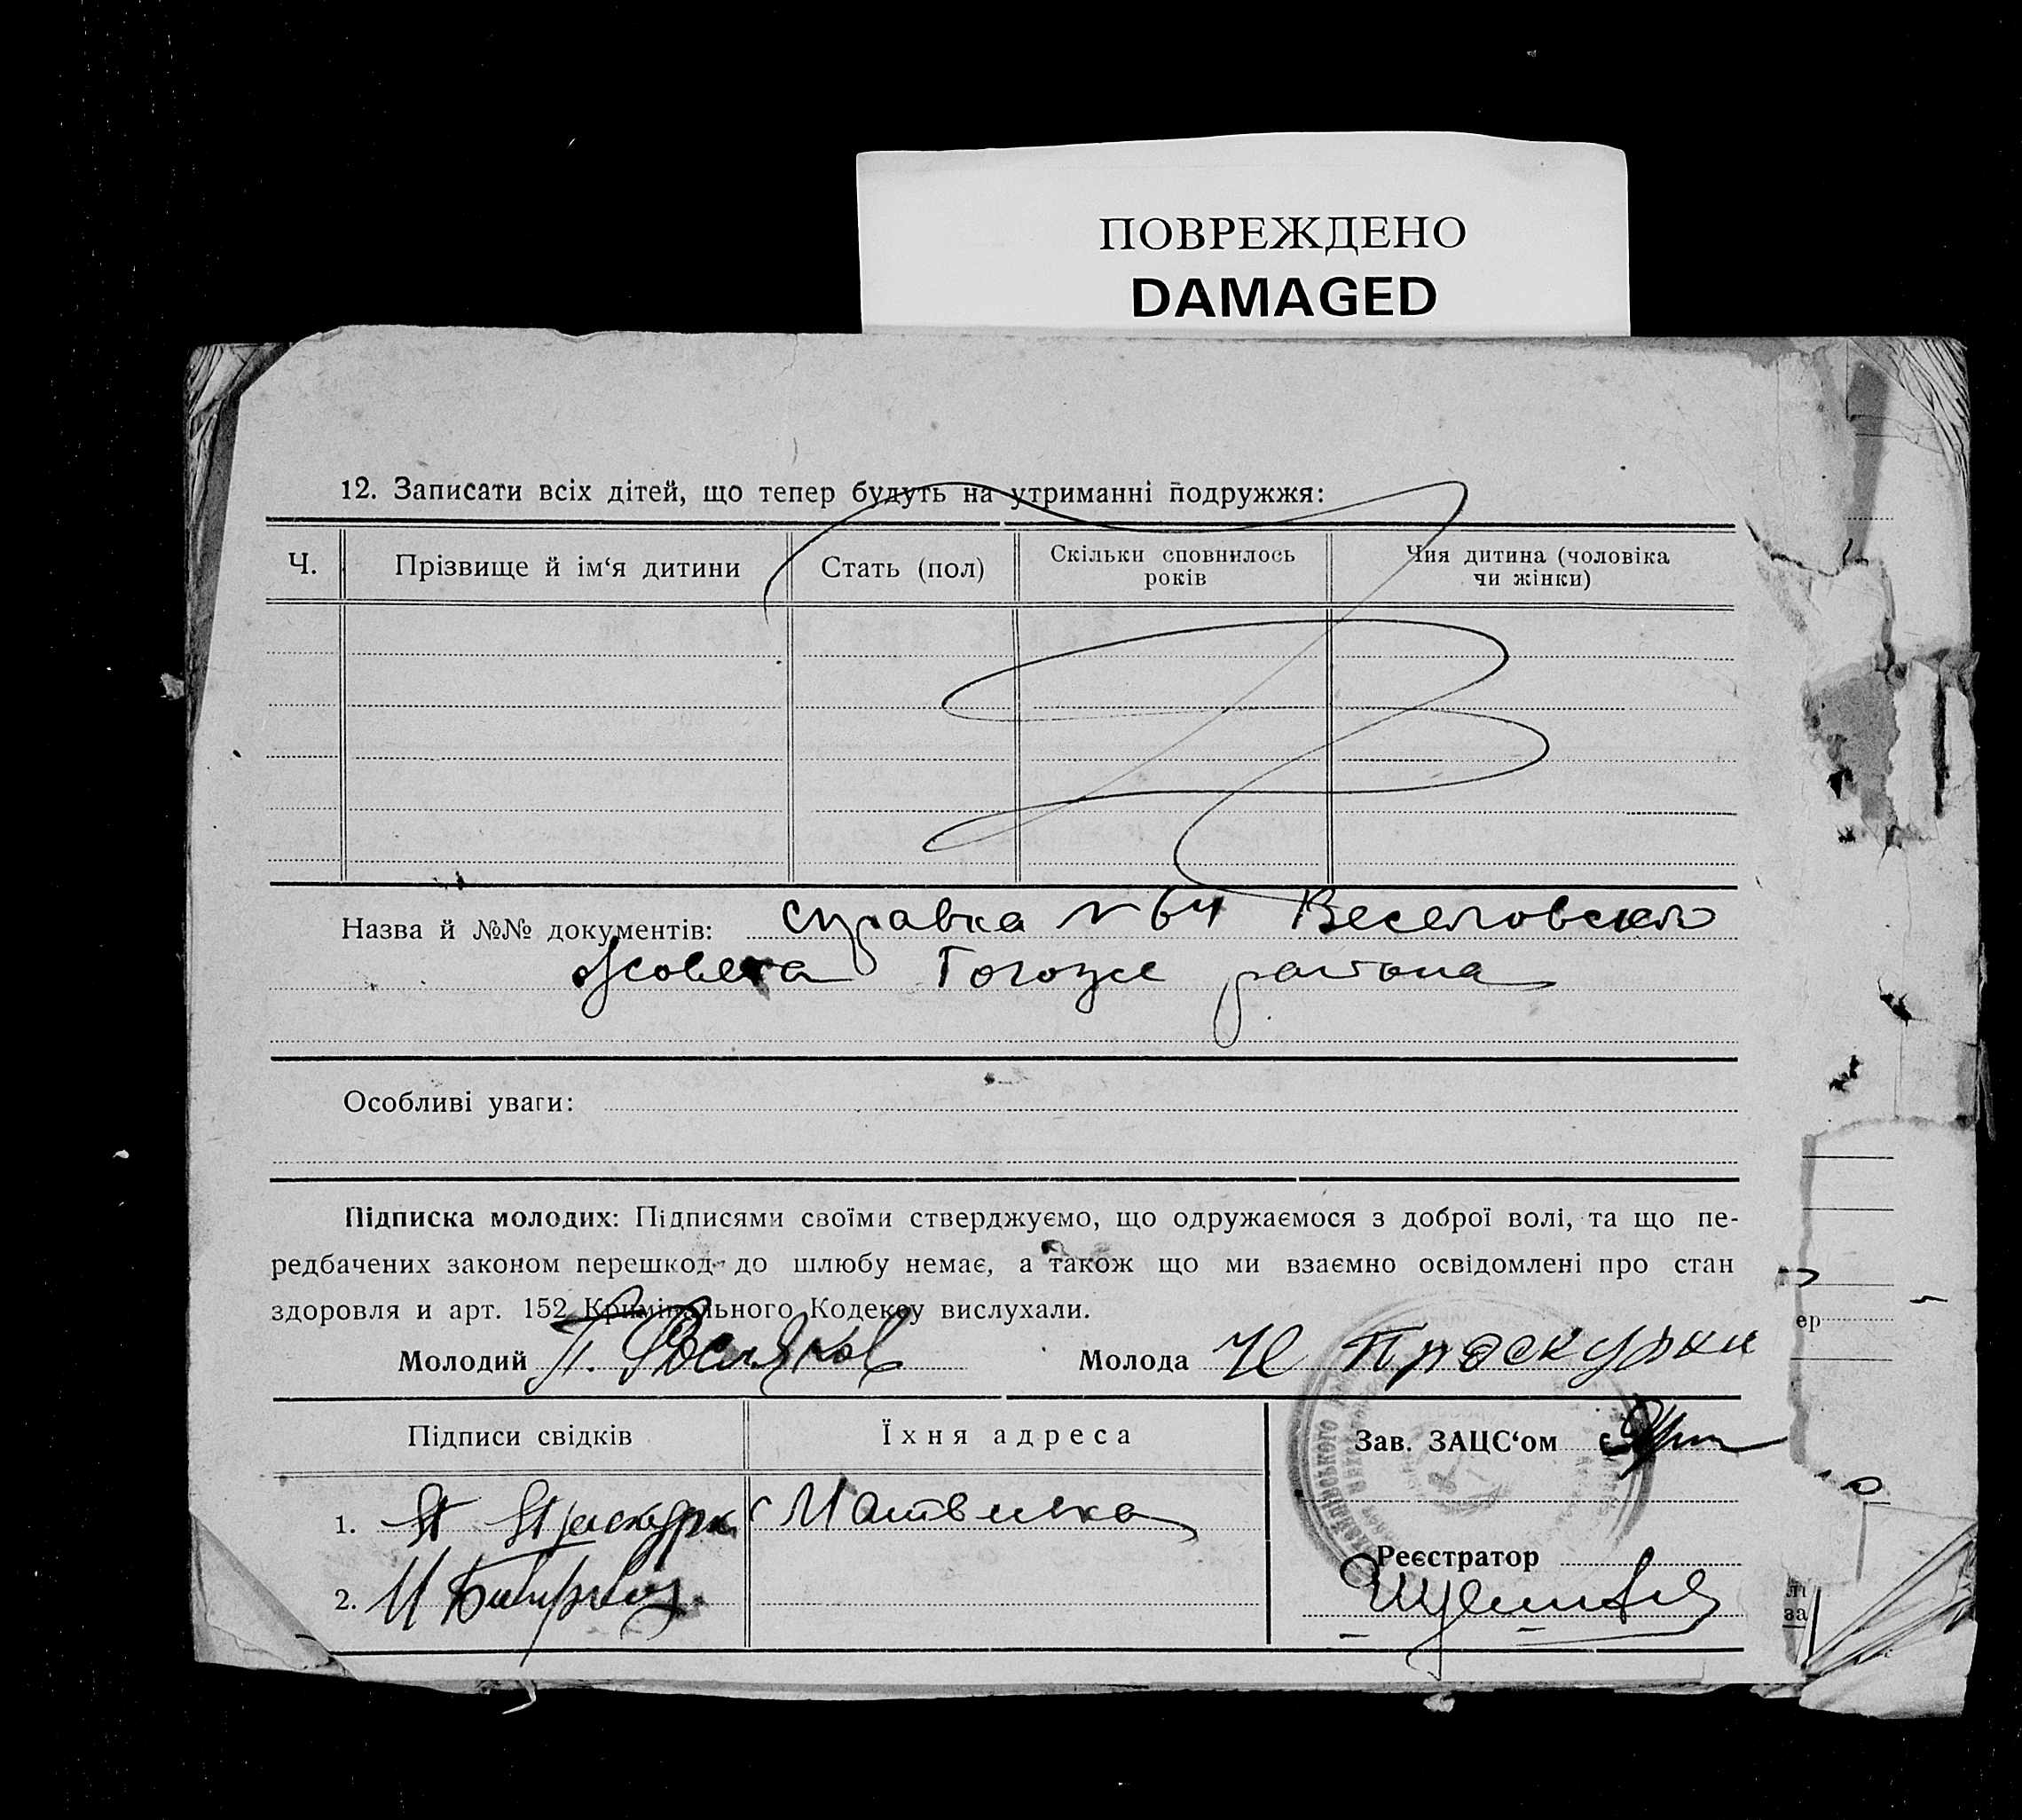 ПОВРЕЖДЕНО
DAMAGED
12. Записати всіх дітей, що тепер будуть на утриманні подружжя:
Ч.
Прізвище й ім‘я дитини
Стать (пол)
Скільки сповнилось
років
Чия дитина (чоловіка
чи жінки)
Назва й №№ документів: справка N 64 Веселовского
района
Особливі уваги:
Підписка молодих: Підписями своїми стверджуємо, що одружаємося з доброї волі, та що пе-
редбачених законом перешкод до шлюбу немає, а також що ми взаємно освідомлені про стан
здоровля и арт. 152 Кримінального Кодексу вислухали.
Молодий П.
Молода Проскурки
Підписи свідків
Їхня адреса
Зав. ЗАЦС‘ом
1.
Матвиевка
Реєстратор
2.
ер
за